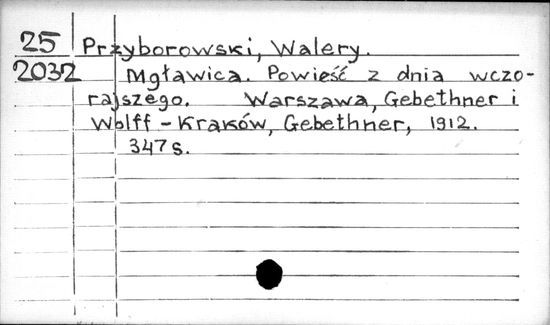 25 Przyborowski, Walery.
2032 Mgławica. Powieść z dnia wczo-
rajszego. Warszawa, Gebethner i
Wolff - Kraków, Gebethner, 1912.
347 s.